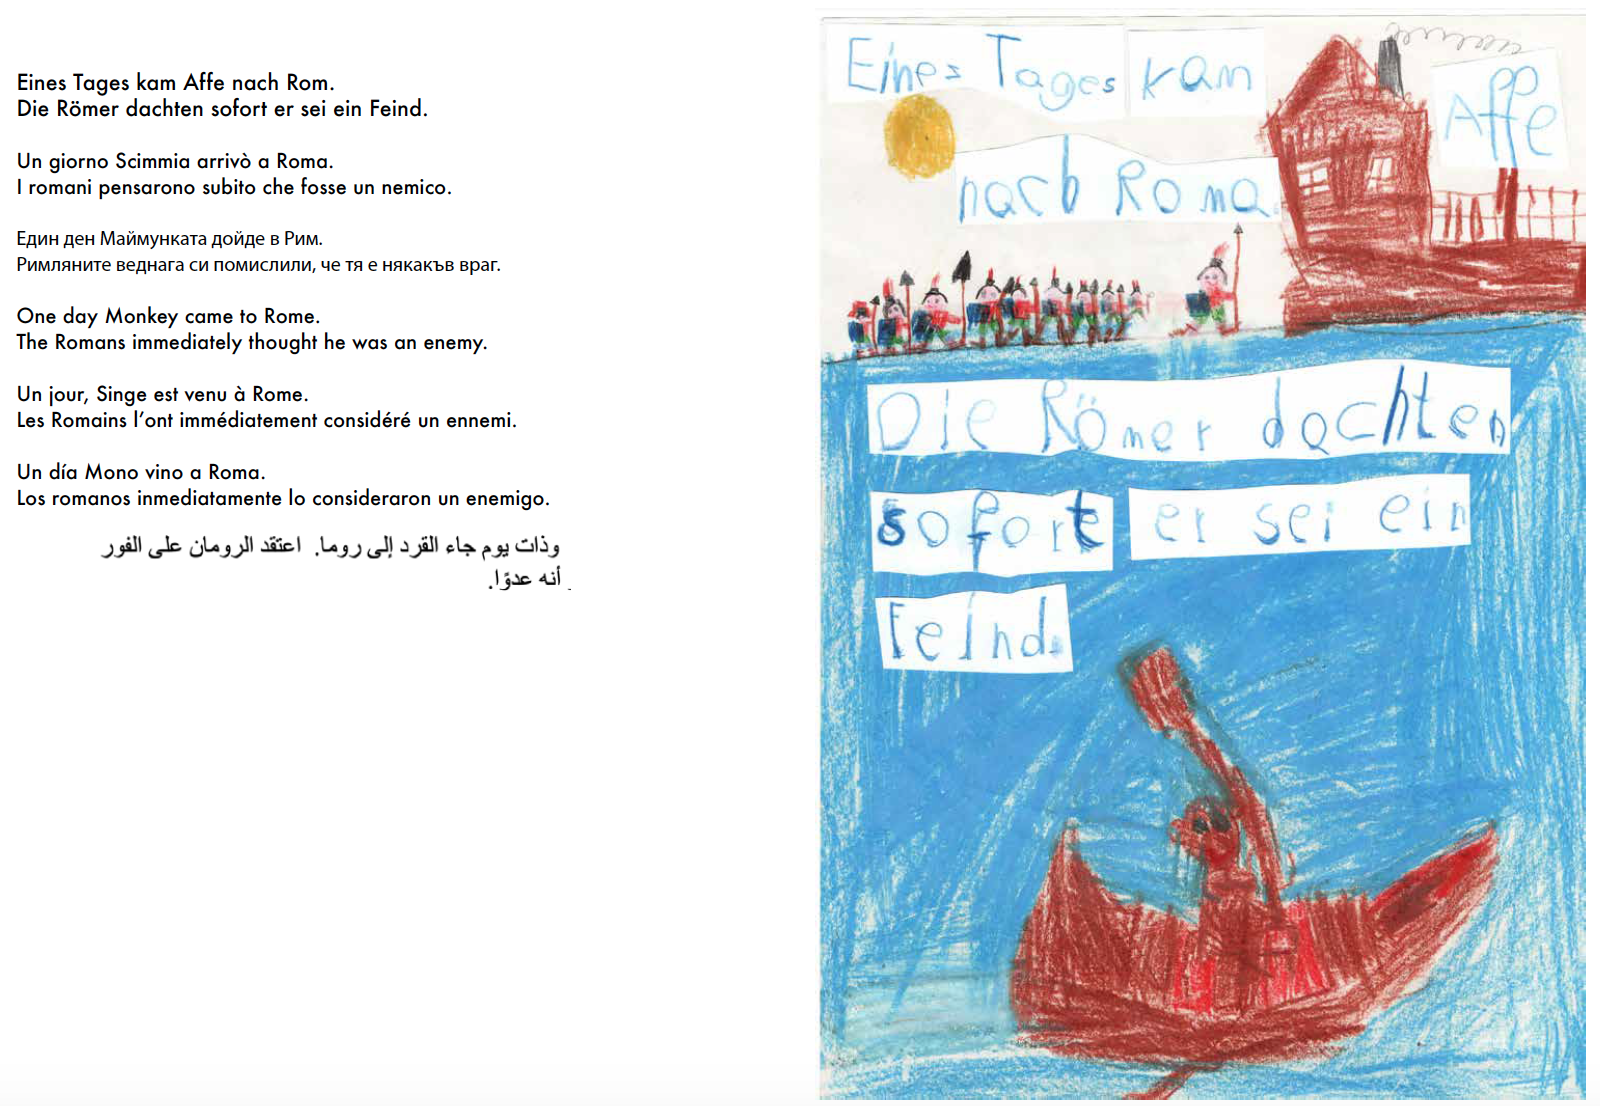 Eines Tages kam Affe nach Rom.
Die Römer dachten sofort er sei ein Feind.
Un giorno Scimmia arrivò a Roma.
I romani pensarono subito che fosse un nemico.
Един ден Маймунката дойде в Рим.
Римляните веднага си помислили, че тя е някакъв враг.
One day Monkey came to Rome.
The Romans immediately thought he was an enemy.
Un jour, Singe est venu à Rome.
Les Romains l’ont immédiatement considéré un ennemi.
Un día Mono vino a Roma.
Los romanos inmediatamente lo consideraron un enemigo.
وذات يوم جاء القرد إلى روما. اعتقد الرومان على الفور
أنه عدوًا.
Eines Tages kam Affe
nach Roma.
Die Römer dachten
sofort er sei ein
Feind.